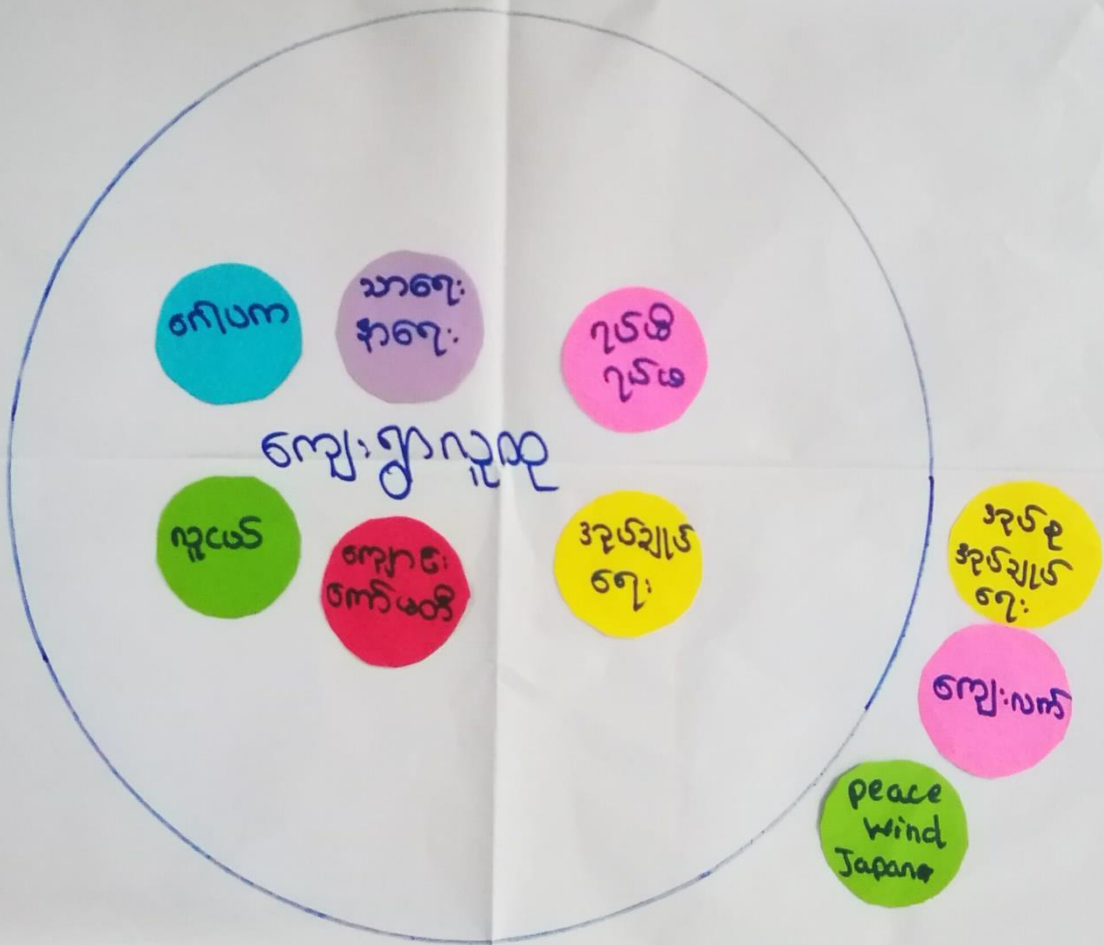 ဂေါပက
သာရေး
နာရေး
ရပ်မိ
ရပ်ဖ
ကျေးရွာလူထု
လူငယ်
ကျောင်း
ကော်မတီ
အုပ်ချုပ်
ရေး
အုပ်စု
အုပ်ချုပ်
ရေး
ကျေးလက်
peace
wind
Japan